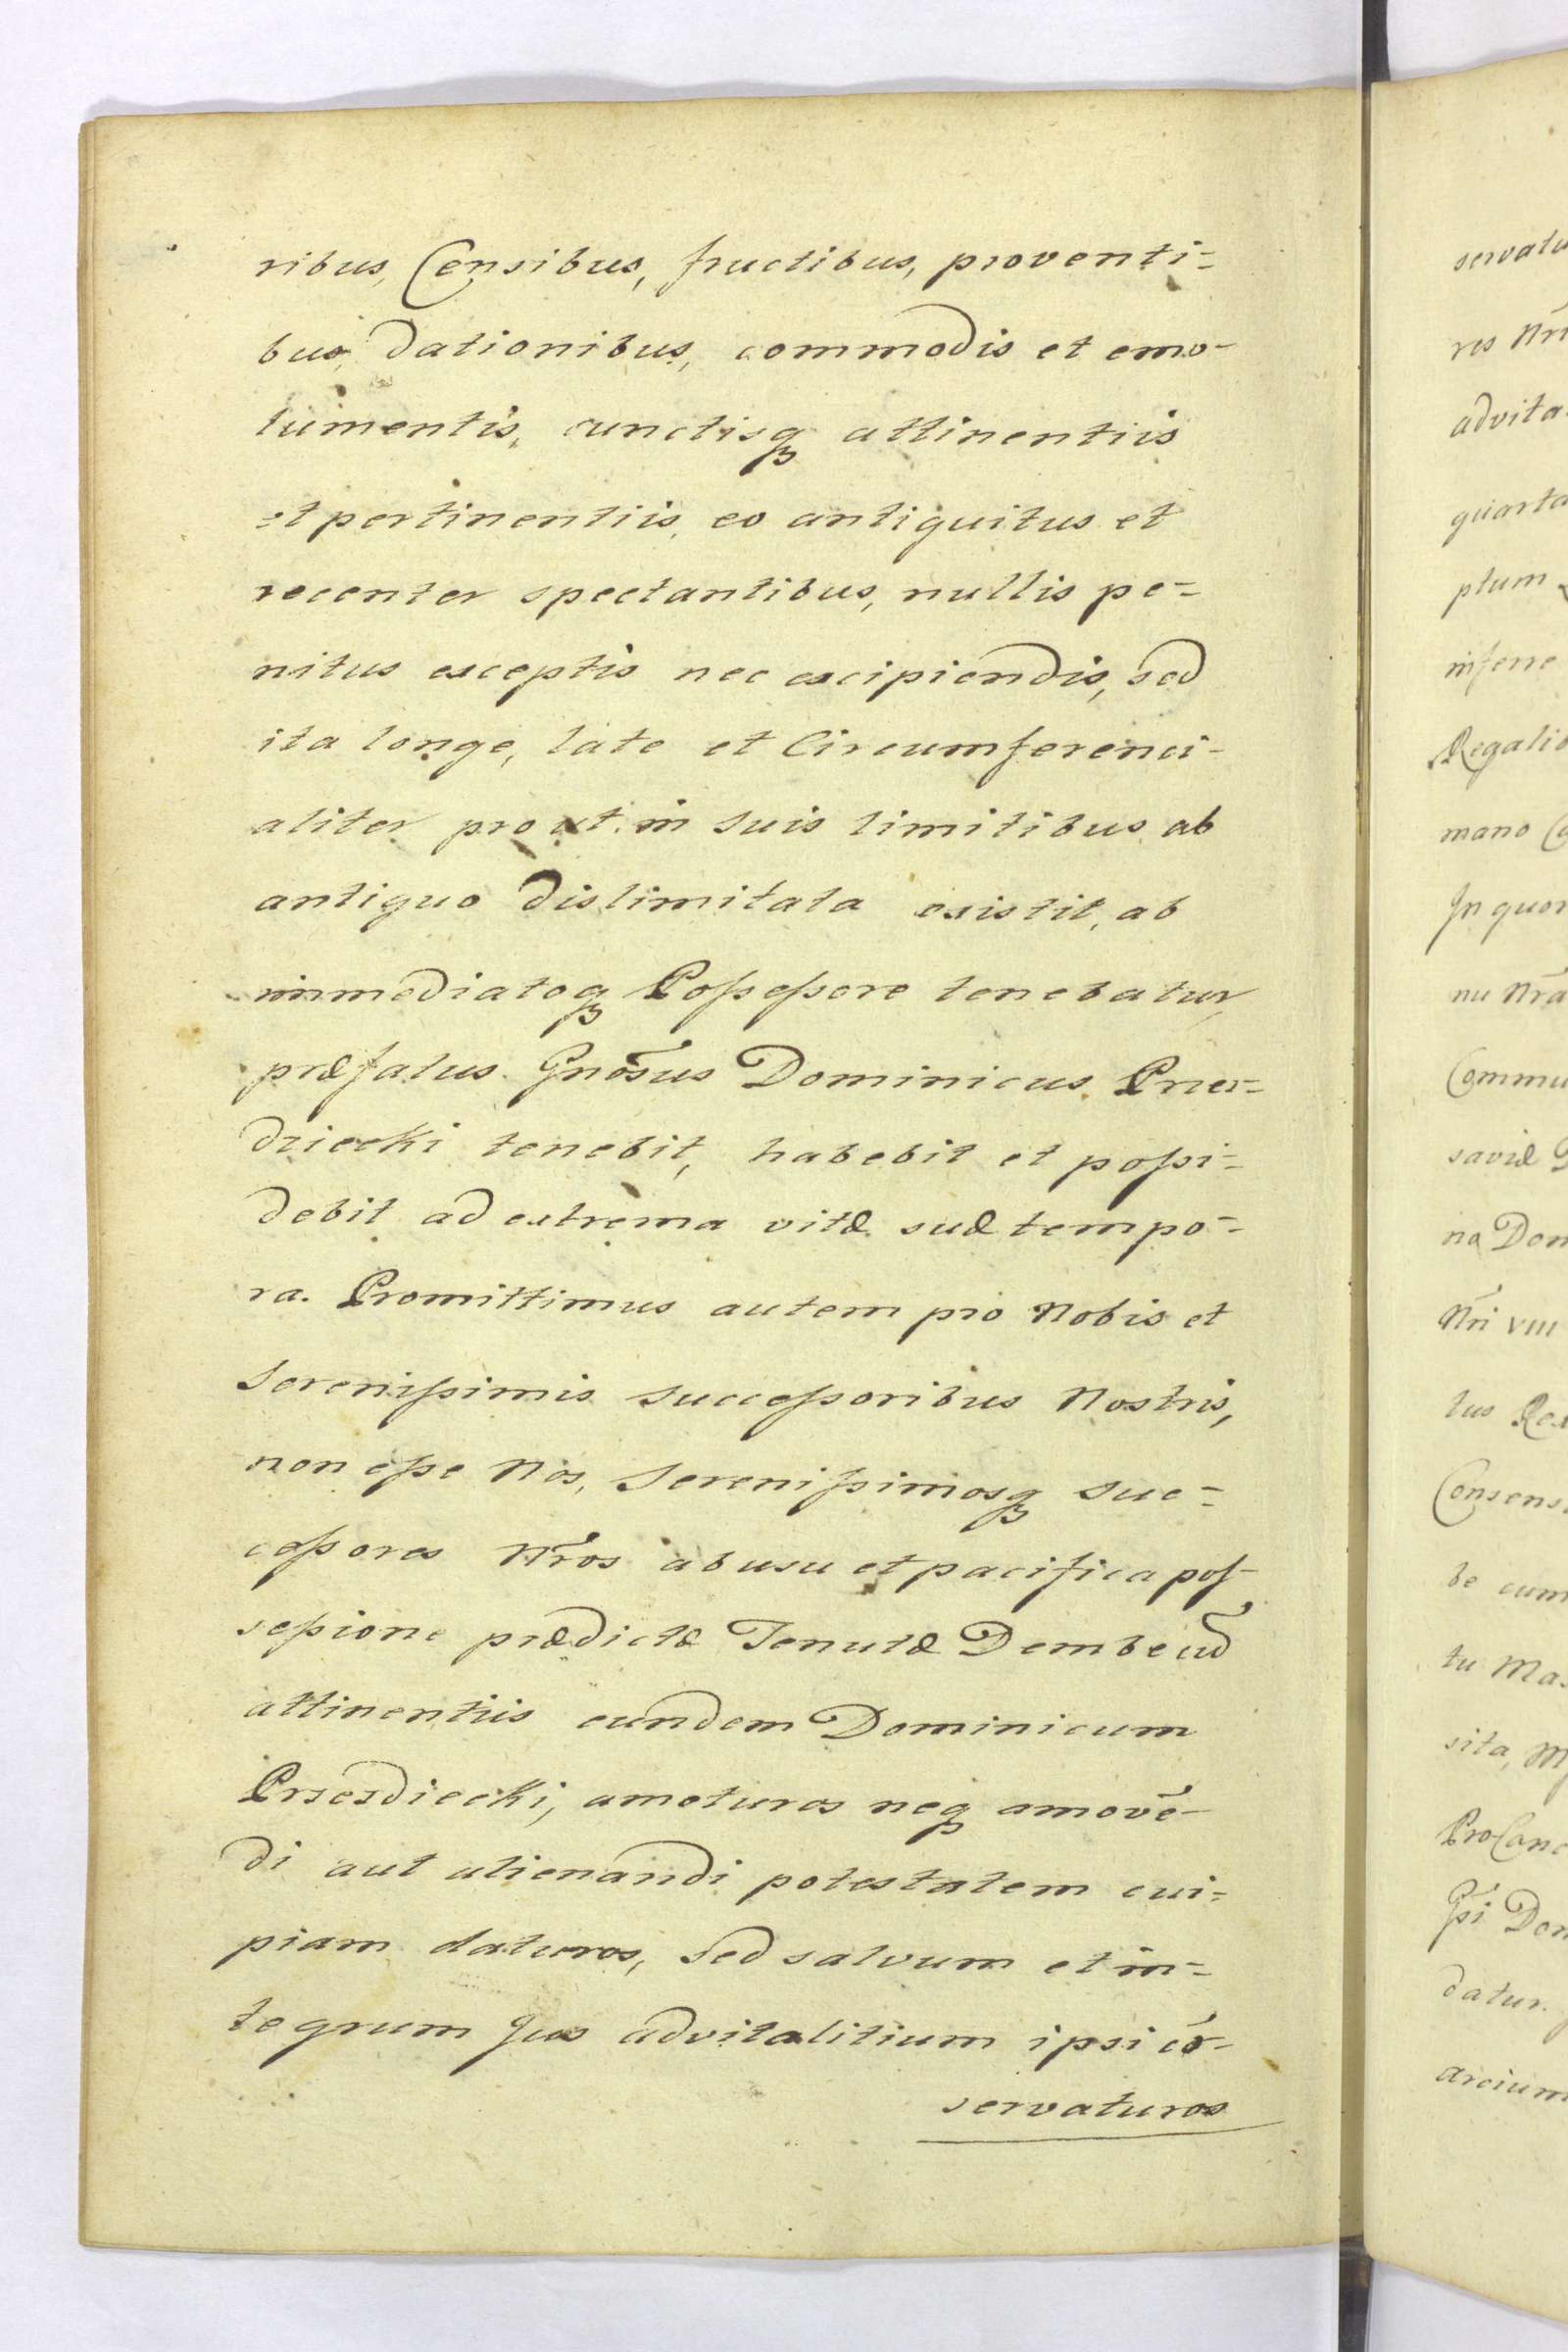 ribus, Censibus, fructibus, proventi=
bus, dationibus, commodis et emo-
lumentis, cunctisq attinentiis
et pertinentiis, eo antiquitus et
recenter spectantibus, nullis pe=
nitus exceptis nec excipiendis, sed
ita longe, late et Circumferenci-
aliter pro ut in suis limitibus ab
antiquo dislimitata existit, ab
immediatoq Poſseſsore tenebatur,
præfatus Gnõsus Dominicus Prez=
dziecki tenebit, habebit et poſsi=
debit ad extrema vitæ suæ tempo=
ra. Promittimus autem pro Nobis et
Sereniſsimis Succeſsoribus Nostris,
non eſse Nos, Sereniſsimosq Suc=
ceſsores Nr̃os ab usu et pacifica poſ-
seſsione prædictæ Tenutæ Dembe cũ
attinentiis eundem Dominicum
Przezdiecki, amoturos neq amovẽ-
di aut alienandi potestatem cui=
piam daturos, Sed salvum et in=
tegrum Jus advitalitium ipsi cõ-
servaturos
servatu
res Nr̃
advita
quarta
ptum
inferre
Regalis
mano
In quor
nu Nr̃a
Commu
saviæ
na Dom
Nr̃i VIII
lus Rex
Consens
be cum
tu Mas
sita, M
ProCanc
Gsi Dom
datur.
arcium